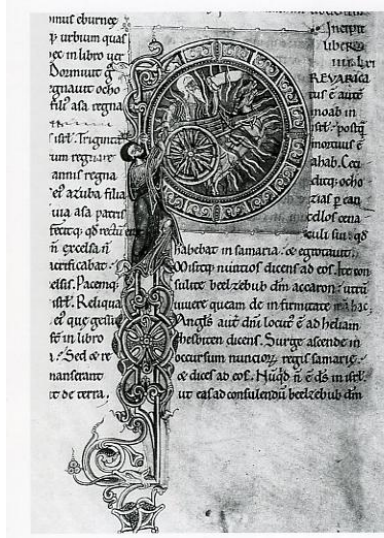 imus eburnee
urbium quas
ec in libro uer
Dormiuit g̅
gnauit ocho
fili᷒ asa regna
isrl̅. Triginta
um regnare
annis regna
et azuba filia
uia asa patris
fecitq; qd̅ rectu̅
n̅ excelsa n̅
acrificabat.
elsis. Pacemq;
isrl̅. Reliqua
et que gessit
st̅ in libro
Sed et re
manserant
it de terra.
Incipit
liber
P
REVARICA
tus e̅ aute̅
moab in
isrl̅. postq̅
mortuus e̅
ahab. Ceci
ditq; ocho
zias p can
cellos cena
culi sui. qd̅
habebat in samaria. et egrotauit.
Misitq; nuncios dicens ad eos. Ite con
sulite beelzebub dm̅ accaron. utru̅
uiuere queam de infirmitate mea hac.
Angls̅ aut̅ dn̅i locut᷒ e̅ ad heliam
thesbiten dicens. Surge ascende in
occursum nuncioru̅ regis samarie.
et dices ad eos. Nu̅qd̅ n̅ e̅ ds̅ in isrl̅.
ut eas ad consulendu̅ beelzebub dm̅